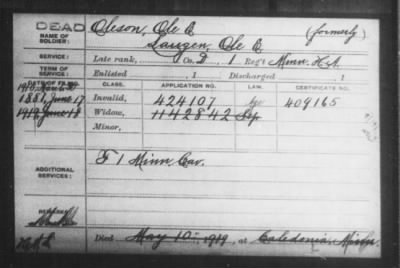 DEAD
NAME OF SOLDIER: Oleson, Ole E. (formerly)
Laugen, Ole E.
SERVICE: Late rank, Co. D 1 Reg't Minn. H.A.
TERM OF SERVICE: Enlisted , 1 Discharged , 1
DATE OF FILING. CLASS. APPLICATION NO. LAW. CERTIFICATE NO.
1881, June 17 Invalid, 424107 409165
1919 June 18 Widow, 1142842 Sep
Minor,
ADDITIONAL SERVICES: F 1 Minn. Cav.
REMARKS:
Died May 10, 1919, at Caledonia, Minn.